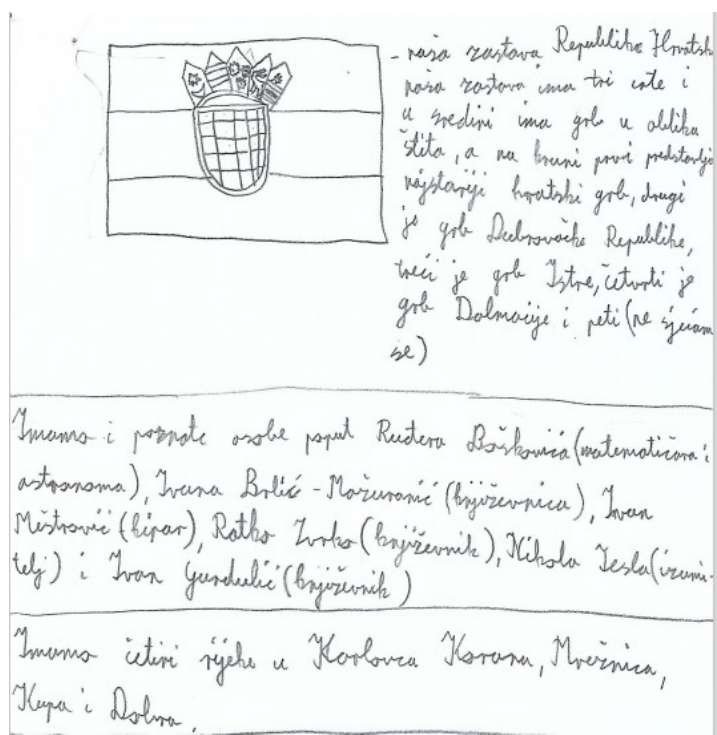 - naša zastava Republike Hrvatsk
naša zastava ima tri crte i
u sredini ima grb u obliku
štita, a na kruni prvi predstavlja
najstariji hrvatski grb, drugi
je grb Dubrovačke Republike,
treći je grb Istre, četvrti je
grb Dalmacije i peti (ne sjećam
se)
Imamo i poznate osobe poput Ruđera Boškovića (matematičara i
astronoma), Ivana Brlić - Mažuranić (književnica), Ivan
Meštrović (kipar), Ratko Zvrko (književnik), Nikola Tesla (izumi-
telj) i Ivan Gundulić (književnik)
Imamo četiri rijeke u Karlovcu Korana, Mrežnica,
Kupa i Dobra.